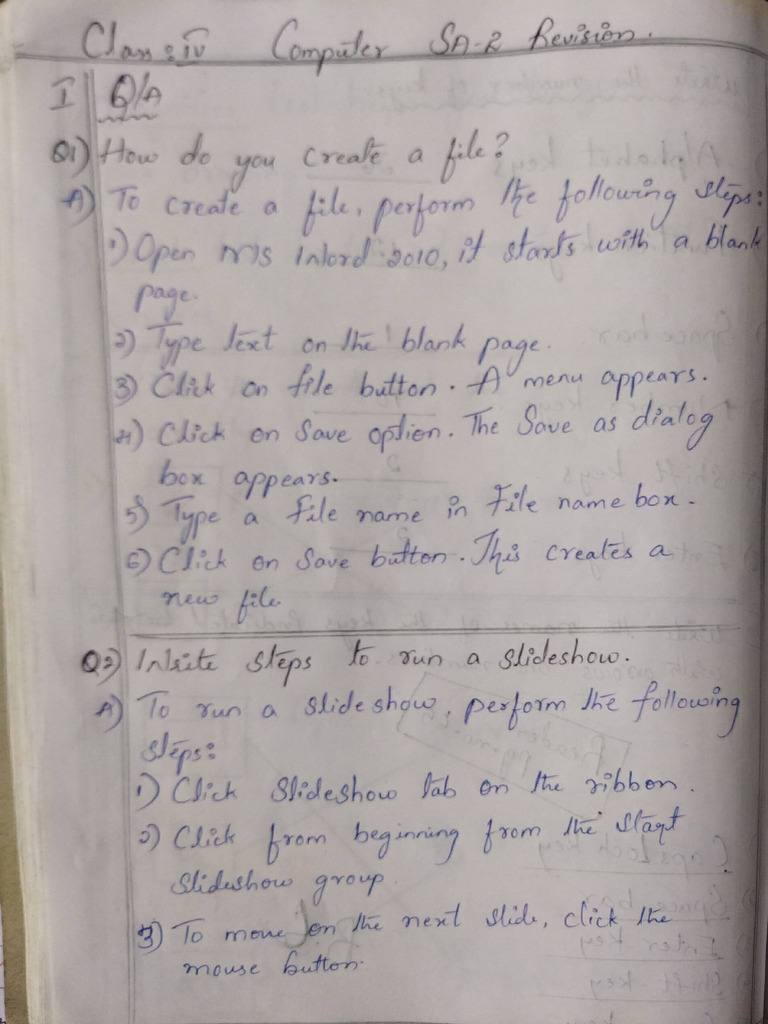 Class: IV Computer SA-2 Revision.
I Q/A
Q1) How do you create a file?
A) To create a file, perform the following steps:
1) Open MS Word 2010, it starts with a blank
page.
2) Type text on the blank page.
3) Click on file button. A menu appears.
4) Click on Save option. The Save as dialog
box appears.
5) Type a file name in File name box.
6) Click on Save button. This creates a
new file.
Q2) Write steps to run a slideshow.
A) To run a slide show, perform the following
steps:
1) Click Slideshow tab on the ribbon.
2) Click from beginning from the start
Slideshow group.
3) To move on the next slide, click the
mouse button.